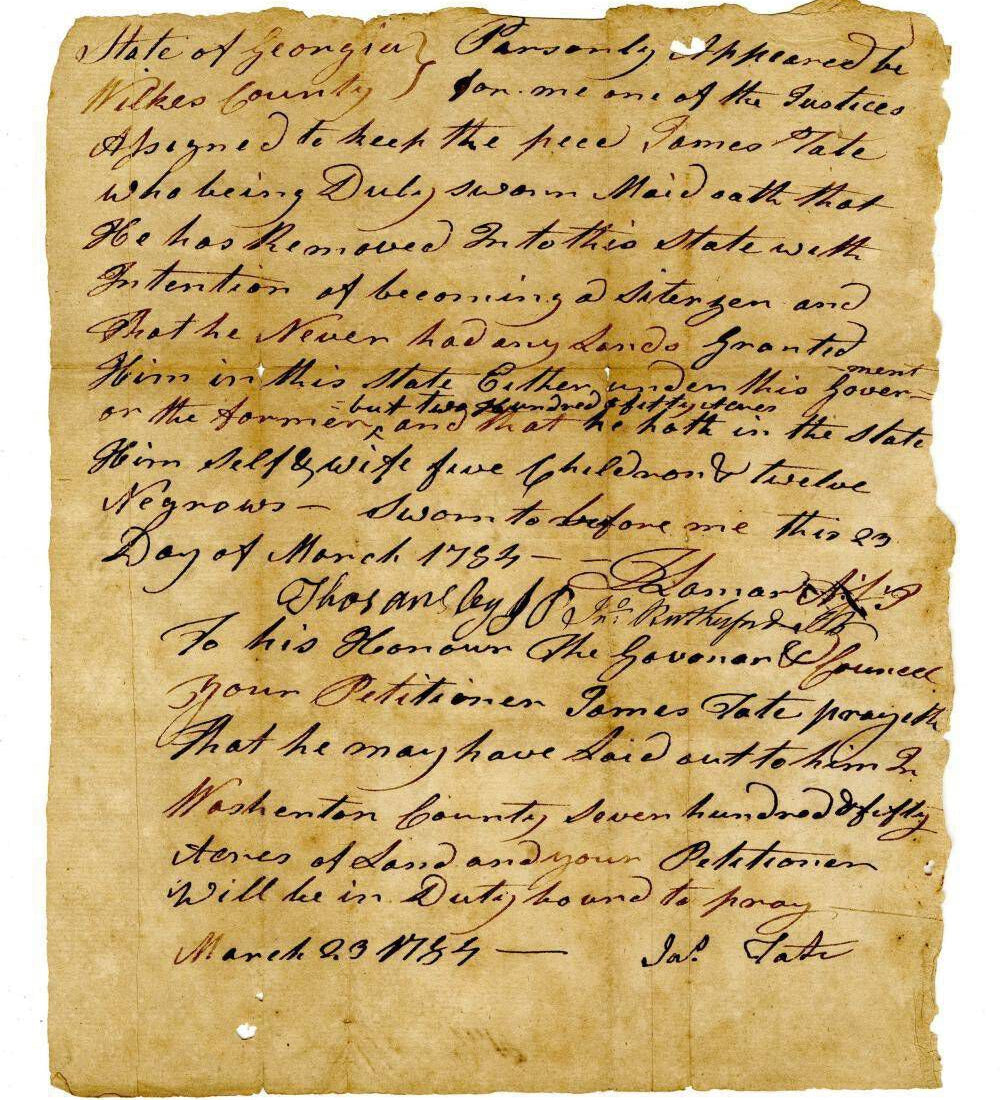 State of Georgia } Parsonly Appeared be
Wilkes County } for me one of the Justices
Assigned to keep the pece James Tate
who being Duly sworn Maid oath that
He has Removed Into this State with
Intention of becoming a Siterzen and
that he Never had any Lands Granted
Him in this State Either under this Gover=
-ment
or the former and that he hath in the State
=but two Hundred & fifty Acres
Him Self & wife five Children & twelve
Negrows — Sworn to before me this 23
Day of March 1784 —
Lamar
Thos Ansley JP Jno. Rutherford
To his Honour the Govonar & Councel
your Petitioner James Tate prayeth
that he may have Laid out to him In
Washenton County Seven hundred & fifty
Acres of Land and your Petitioner
Will be in Duty bound to pray
March 23 1784 — Jas. Tate